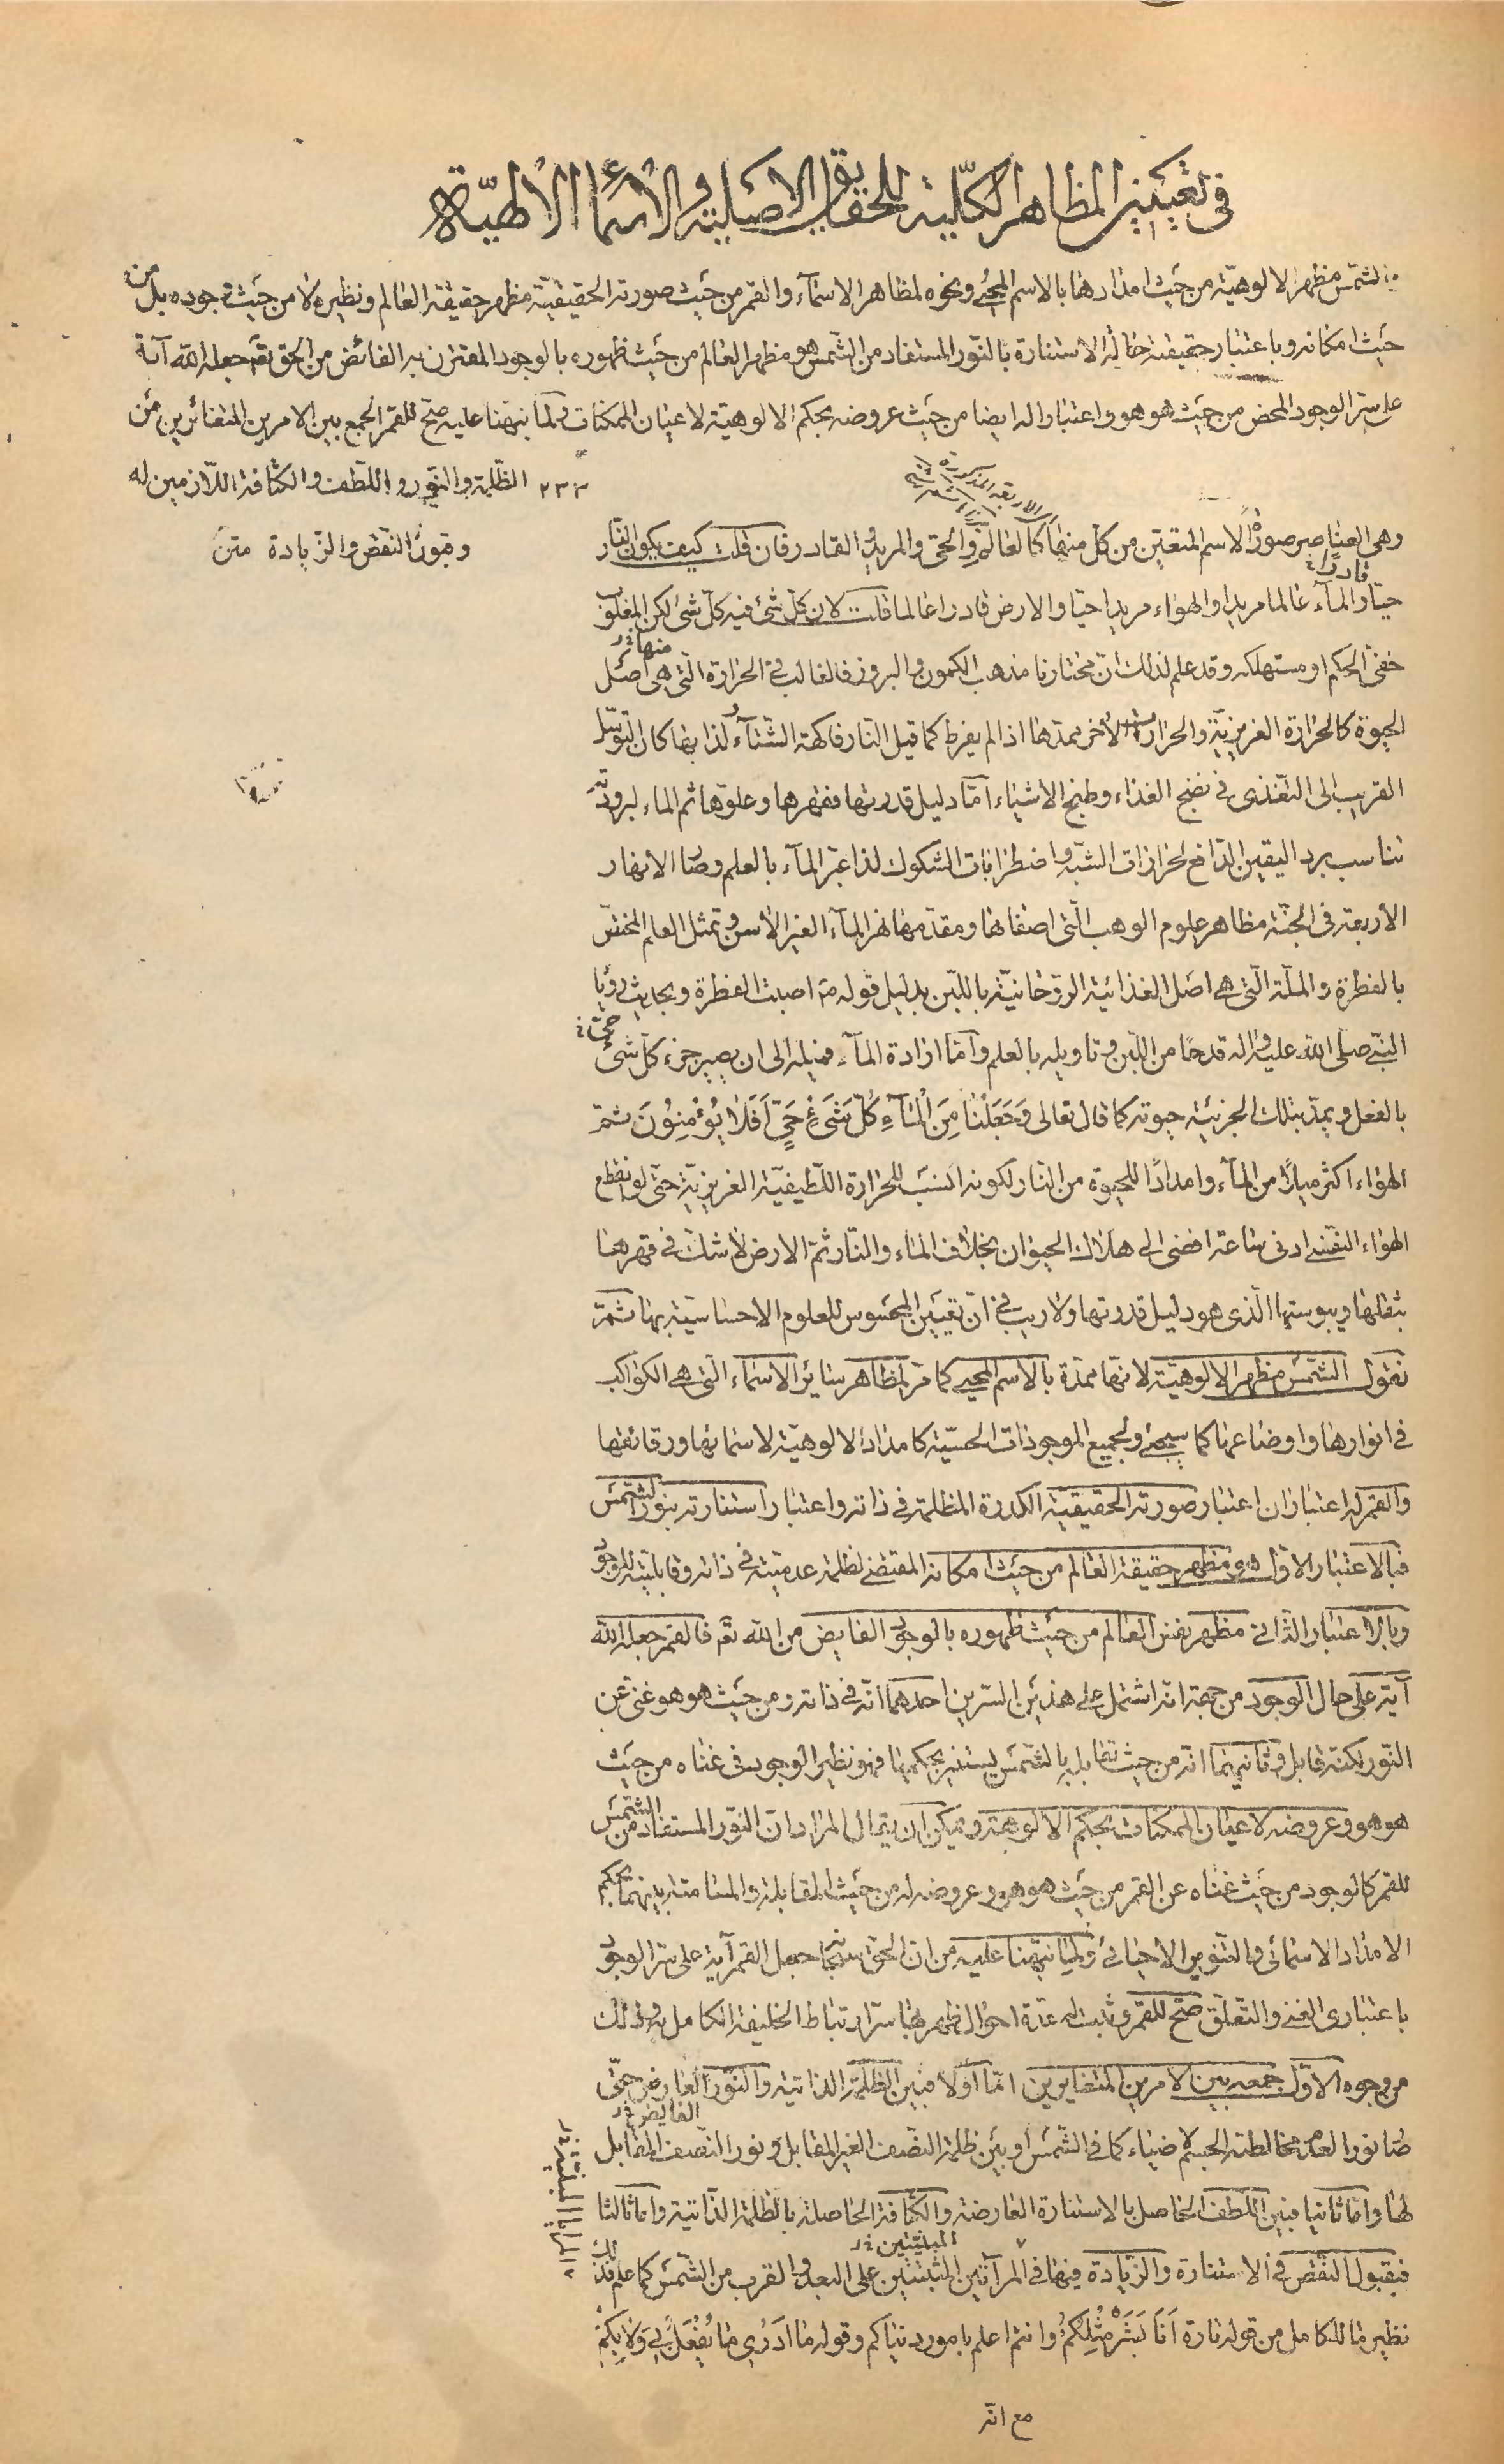 في تعيين المظاهر الكلّية للحقايق الاصلية والأسماء الألهيّة
الشمس مظهر الالوهيّة من حيث امدادها بالاسم المحيي ونحوه لمظاهر الاسمآء والقمر من حيث صورته الحقيقيّة مظهر حقيقة العالم ونظيره لا من حيث وجوده بل من
حيث امكانه وباعتبار حقيقته حالة الاستنارة بالنّور المستفاد من الشمس هو مظهر العالم من حيث ظهوره بالوجود المقترن به الفائض من الحق تعم جعله الله آية
على سرّ الوجود المحض من حيث هو هو واعتبار اله ايضا من حيث عروضه بحكم الالوهيّة لاعيان الممكنات ولما نبّهنا عليه صحّ للقمر الجمع بين الامرين المتغائرين من
٢٣٣ الظّلمة والنّور واللّطف والكثافة اللّازمين له
وقبول النقض والزّيادة متن
الاربعة المذكورة
وهي العناصر صورة الاسم المتعيّن من كل منها كالعالم والحيّ والمريد والقادر فان قلت كيف يكون النّار
قادرا
حيّا والمآء عالما مريدا والهواء مريدا حيّا والارض قادرا عالما قلت لان كل شئ فيه كل شئ لكن المغلوب
منها خ ر
خفيّ الحكم او مستهلكه وقد علم لذلك انّ مختارنا مذهب الكمون والبروز فالغالب في الحرارة الّتي هي اصل
الحيوة كالحرارة الغريزيّة والحرارات الأخر ممدّها اذا لم يفرط كما قيل النّار فاكهة الشتآء ولذا بها كان التوسّل
القريب الى التغذى في نضج الغذاء وطبخ الاشياء امّا دليل قدرتها فقهرها وعلوّها ثم الماء لبرودته
تناسب برد اليقين الدافع لحرازات الشبّه واضطرابات الشكوك لذا عبّر المآء بالعلم وصار الانهار
الأربعة في الجنّة مظاهر علوم الوهب الّتي اصفاها ومقدّمها نهر المآء الغير الأسن وتمثل العلم المختصّ
بالفطرة والملّة الّتي هي اصل الغذائية الروحانيّة باللبن بدليل قوله ص اصبت الفطرة وبحديث رؤيا
حيّ خ
النبيّ صلى الله عليه واله قدحا من اللبن وتاويله بالعلم وامّا ارادة المآء فميله الى ان يصير جزء كل شئ
بالفعل ويمدّ بتلك الجزئية حيوته كما قال تعالى وَجَعَلْنا مِنَ الْمآءِ كُلَّ شَيْءٍ حَيٍّ اَفَلا يُؤْمِنُونَ ثمّ
الهواء اكثر ميلا من المآء وامدادًا للحيوة من النّار لكونه انسب للحرارة اللّطيفيّة الغريزيّة حتى لو انقطع
الهواء النفسي ادنى ساعة افضى الى هلاك الحيوان بخلاف الماء والنّار ثمّ الارض لا شك في قهرها
بثقلها ويبوستها الّذى هو دليل قدرتها ولا ريب في انّ تعيّن المحسوس للعلوم الاحساسيّة بها ثمّة
نقول الشمس مظهر الالوهيّة لانّها ممدّة بالاسم المحيي كما مرّ لمظاهر سائر الاسماء الّتي هي الكواكب
في انوارها واوضاعها كما سيجئ ولجميع الموجودات الحسّية كامداد الالوهيّة لاسمائها ورقائقها
والقمر له اعتباران اعتبار صورته الحقيقيّة الكدرة المظلمة في ذاته واعتبار استنارته بنور الشمس
فبالاعتبار الاوّل هو مظهر حقيقة العالم من حيث امكانه المقتضى لظلمة عدميّته في ذاته وقابليّته للوجود
وبالاعتبار الثّاني مظهر نفس العالم من حيث ظهوره بالوجود الفايض من الله تعم فالقمر جعله الله
آية على حال الوجود من جهة انّه اشتمل على هذين السّرين احدهما انّه في ذاته ومن حيث هو هو غنيّ عن
النّور لكنّه قابل وثانيهما انّه من حيث تقابله بالشمس يستنير بحكمها فهو نظير الوجود في غناه من حيث
هو هو وعروضه لاعيان الممكنات بحكم الالوهيّة ويمكن ان يقال المراد ان النّور المستفاد من الشمس
للقمر كالوجود من حيث غناه عن القمر من حيث هو هو وعروضه له من حيث المقابلة والمسامتة بينهما بحكم
الامداد الاسمائي والتنوير الاحيائي ولما نبّهنا عليه من ان الحق سبحانه جعل القمر آية على سرّ الوجود
باعتبارى الغنى والتعلّق صحّ للقمر وثبت له عدّة احوال ظهر بها سرّ ارتباط الخليفة الكامل به وذلك
من وجوه الاوّل جمعه بين الامرين المتغايرين امّا اوّلا فبين الظّلمة الذاتية والنّور العارض حتّى
الفايض خ ر
صار نور العام مخالطة الجسم لا ضياء كما في الشمس او بين ظلمة النصف الغير المقابل ونور النّصف المقابل
لها وامّا ثانيا فبين اللطف الحاصل بالاستنارة العارضة والكثافة الحاصلة بالظلمة الذّاتية وامّا ثالثا
المبنيّتين خ ر
فبقبول النقض في الاستنارة والزّيادة فيها في المرآتين المثبتتين على البعد والقرب من الشمس كما علم فذلك
نظير ما للكامل من قوله تارة اَنَا بَشَرٌ مِثْلُكُمْ وانتم اعلم بامور دنياكم وقوله ما اَدْرِي ما يُفْعَلُ بي وَلا بِكُمْ
مع انّه